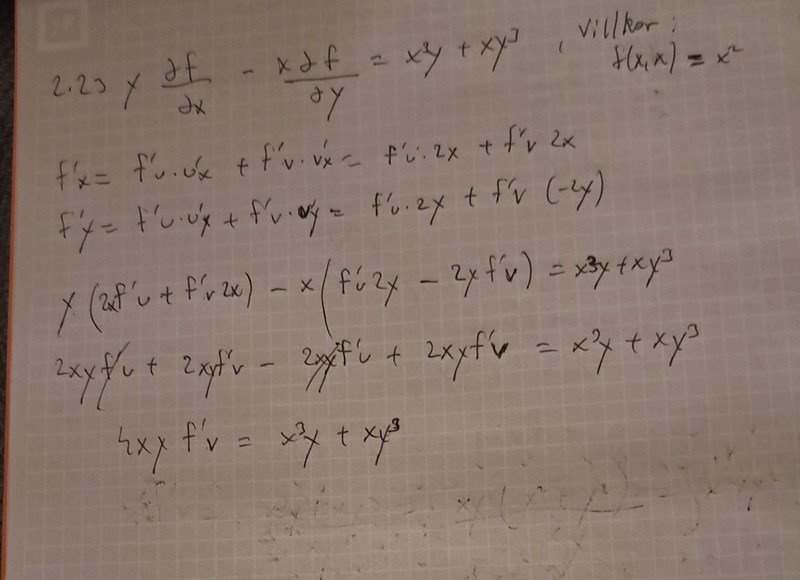 2.23 y ∂f/∂x - x∂f/∂y = x³y + xy³, villkor:
f(x,x) = x²
f'x = f'u·u'x + f'v·v'x = f'u·2x + f'v 2x
f'y = f'u·u'y + f'v·v'y = f'u·2y + f'v (-2y)
y(2xf'u + f'v2x) - x(f'u2y - 2yf'v) = x³y + xy³
2xyf'u + 2xyf'v - 2xyf'u + 2xyf'v = x³y + xy³
4xy f'v = x³y + xy³